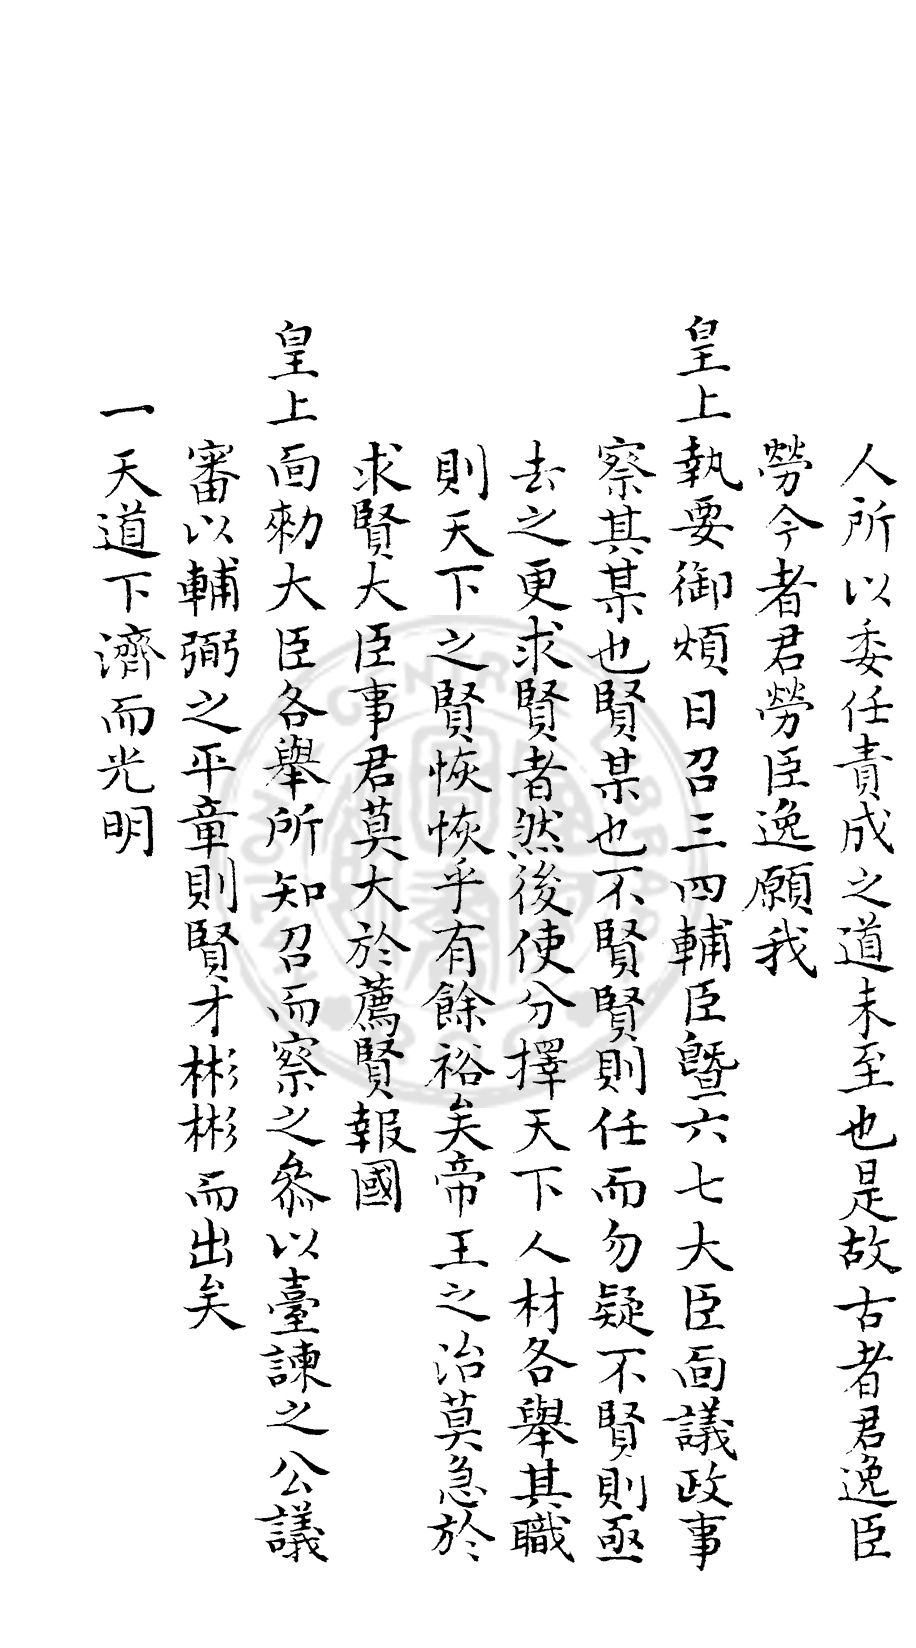 人所以委任責成之道未至也是故古者君逸臣
勞今者君勞臣逸願我
皇上執要御煩日召三四輔臣曁六七大臣面議政事
察其某也賢某也不賢賢則任而勿疑不賢則亟
去之更求賢者然後使分擇天下人材各舉其職
則天下之賢恢恢乎有餘裕矣帝王之治莫急於
求賢大臣事君莫大於薦賢報國
皇上面勑大臣各舉所知召而察之叅以臺諫之公議
審以輔弼之平章則賢才彬彬而出矣
一天道下濟而光明